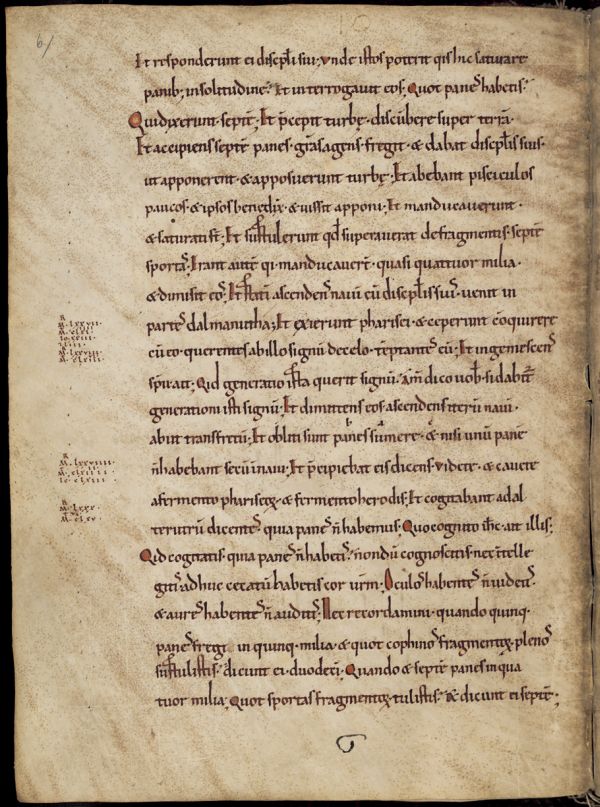 67
Et responderunt ei discipłi sui; unde istos poterit qis hic saturare
panib; in solitudine? Et interrogavit eos; Quot paneſ habetis?
Qui dixerunt· septē; Et p̄cepit turbę· discūbere super terrā·
Et accipiens septē panes· gr̄as agens· fregit· & dabat discipłis suis·
ut apponerent· & apposuerunt turbę; Et abebant pisciculos
paucos· & ipsos benedix̄· & iussit apponi; Et manducauerunt·
& saturati st̄; Et sustulerunt qđ superauerat de fragmentis· septē
sportaſ; Erant autē qi manducauer̄t· quasi quattuor milia·
& dimisit eoſ; Et statī ascendenſ nauī cū discipłis suiſ· uenit in
parteſ dalmanutha; Et exierunt pharisei· & ceperunt cōquirere
cū eo· querentes ab illo signū de celo· tēptantes cū; Et ingemescenſ
sp̄u ait; Qid generatio ista querit signū? am̄ dico uob· si dabit᷒
generationi isti signū; Et dimittens eos· ascendens iterū nauī·
abiit trans fretū; Et obliti sunt panes sumere· & nisi unū pane
n̄ habebant secū in naui; Et p̄cipiebat eis dicens· videte· & cauete
a fermento phariseoꝝ· & fermento herodis; Et cogitabant ad al
terutrū dicenteſ· quia paneſ n̄ habemus; Quo cognito ih̄c· ait illis;
Qid cogitatis· quia paneſ n̄ habetiſ? nondū cognoscitis· nec ītelle
gitiſ? adhuc cecatū habetis cor ur̄m; Oculoſ habenteſ n̄ uidetiſ?
& aureſ habenteſ n̄ auditiſ? Nec recordamini· quando quinq·
paneſ fregi in quinq· milia· & quot cophinoſ fragmentoꝝ· plenoſ
sustulistis? dicunt ei· duodecī; Quando & septē panes in qua
tuor milia; Quot sportas fragmentoꝝ tulistis? & dicunt ei septē;
R
M· lxxvii·
M· clxi·
lo· xxiii·
R
M· lxxviii·
M· clxiii·
R
M· lxxviiii·
M· clxiiii·
R
M· lxxx·
M· clxv·